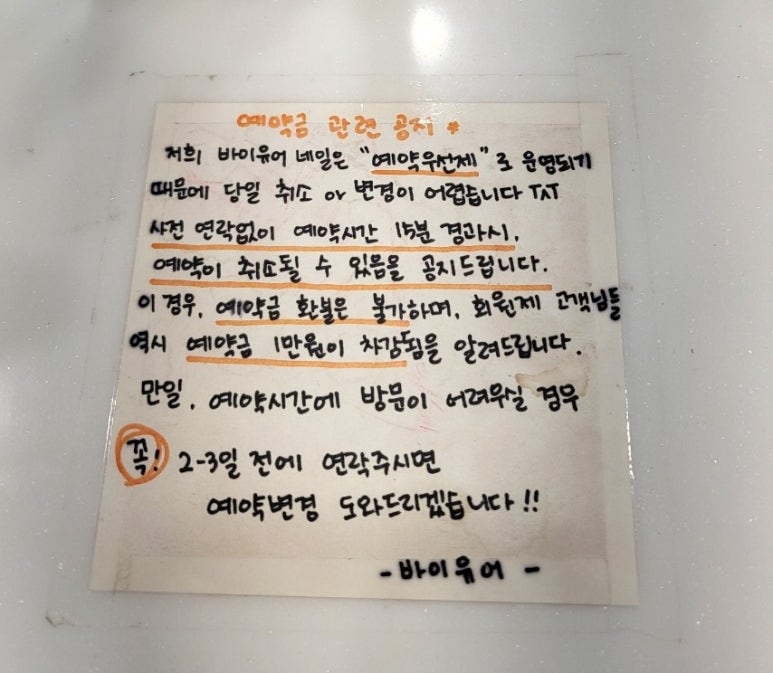 예약금 관련 공지 *
저희 바이유어 네일은 "예약우선제"로 운영되기
때문에 당일 취소 or 변경이 어렵습니다 TAT
사전 연락없이 예약시간 15분 경과시,
예약이 취소될 수 있음을 공지드립니다.
이 경우, 예약금 환불은 불가하며, 회원제 고객님들
역시 예약금 1만원이 차감됨을 알려드립니다.
만일, 예약시간에 방문이 어려우실 경우
꼭! 2-3일 전에 연락주시면
예약변경 도와드리겠습니다!!
-바이유어-